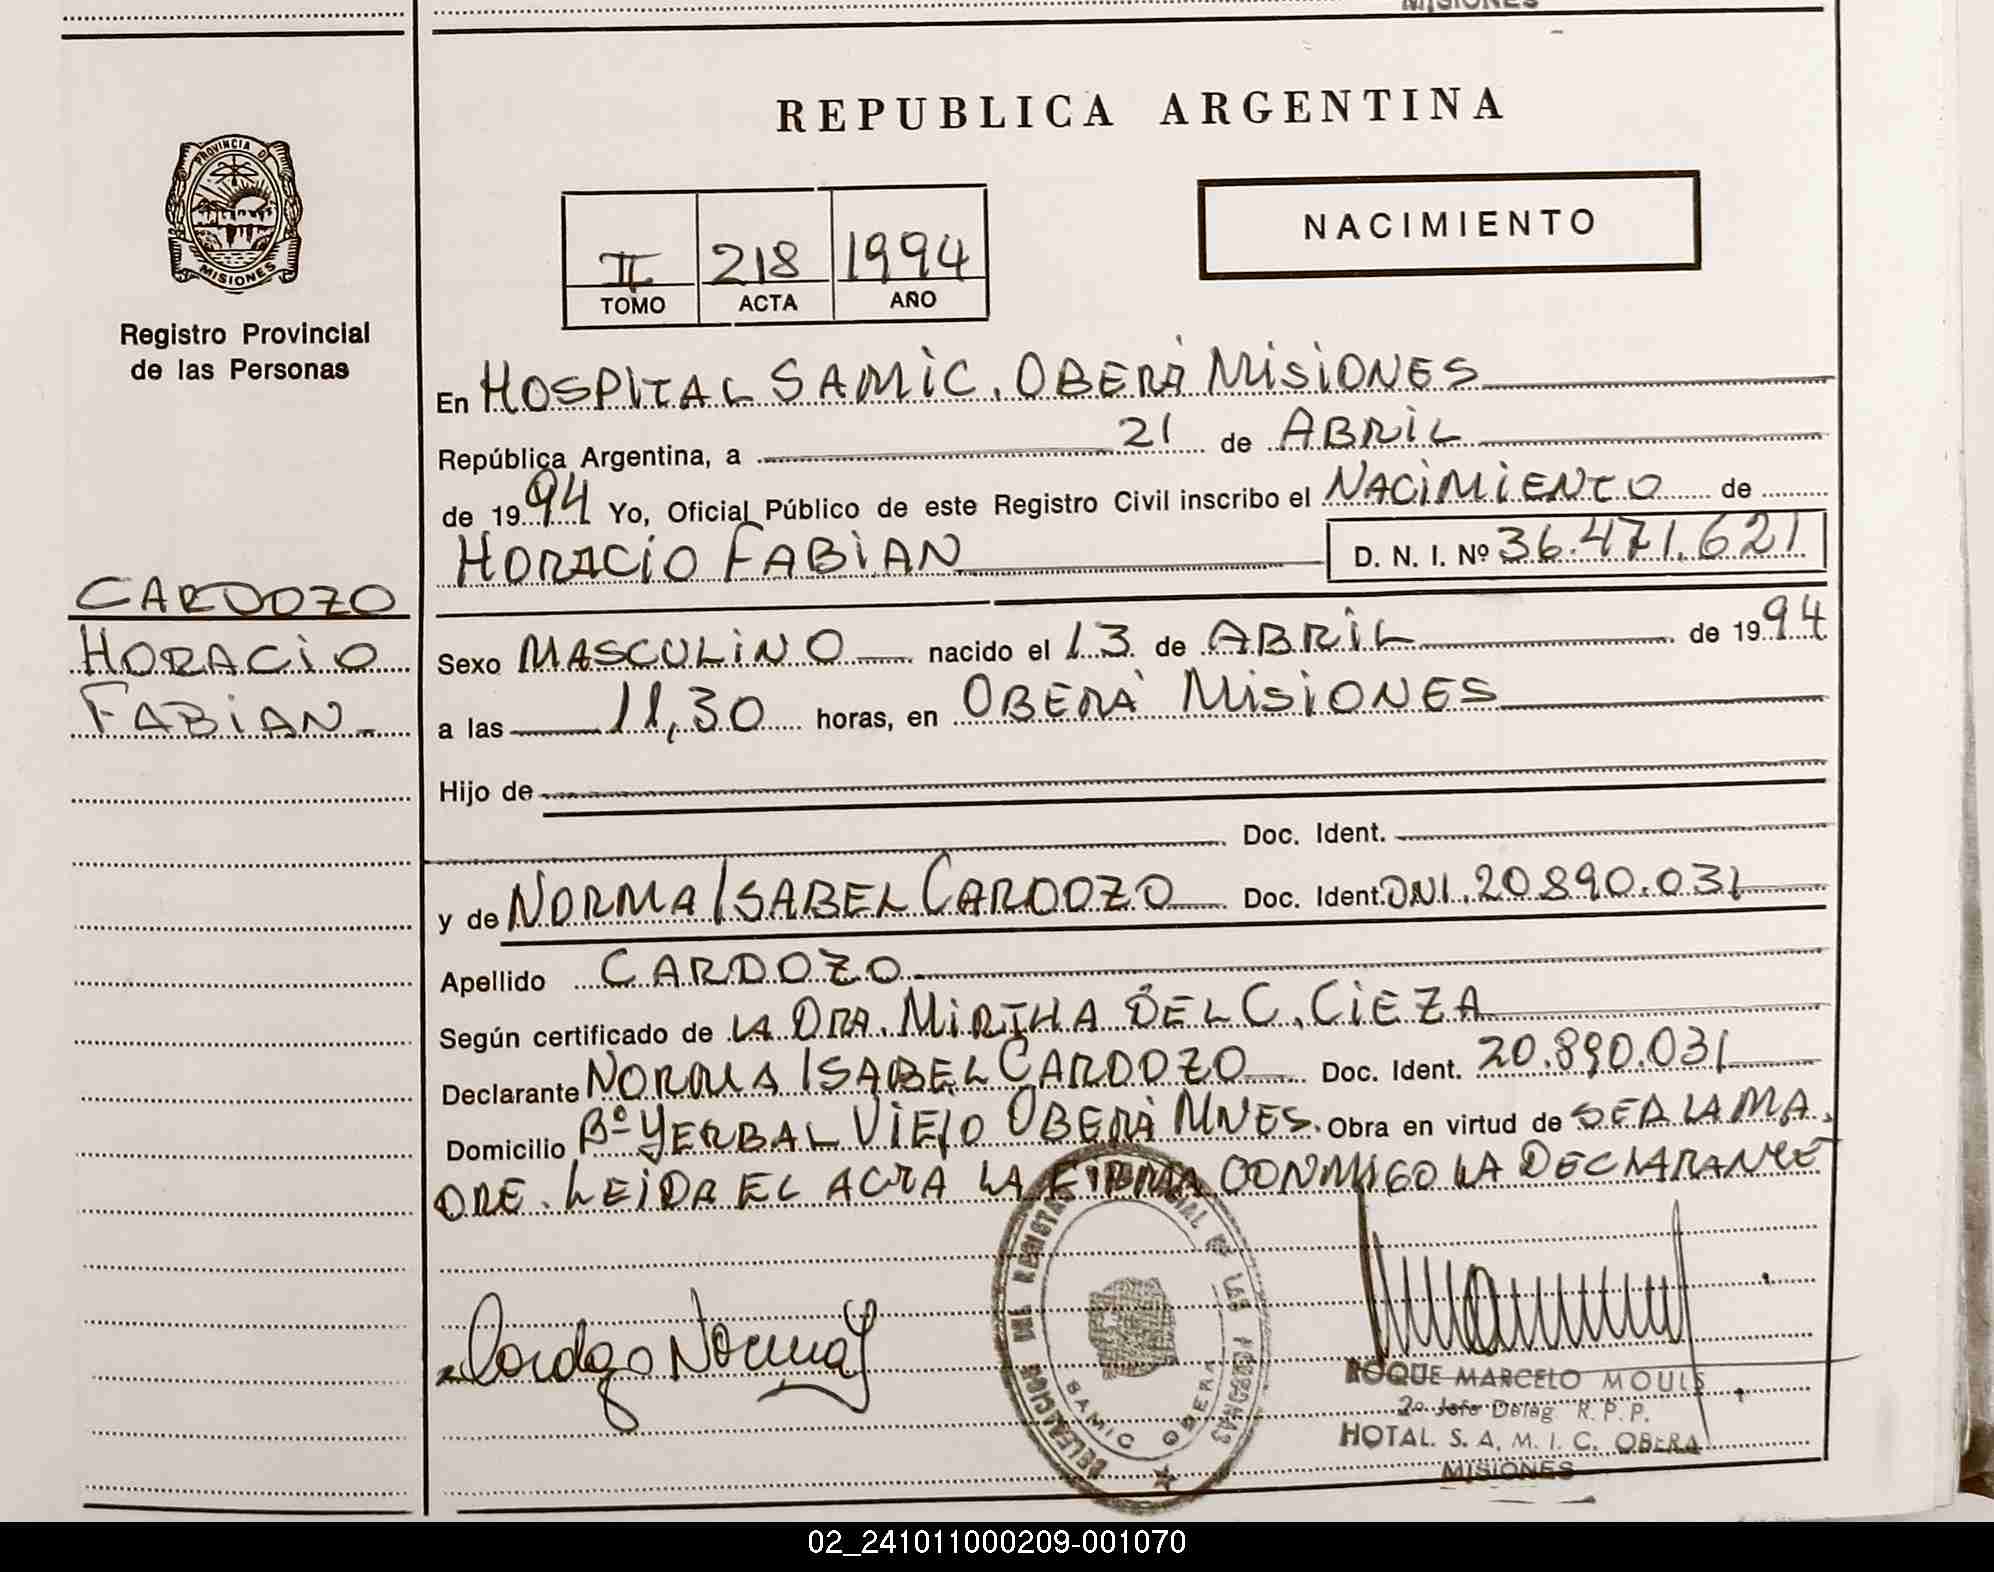 MISIONES
REPUBLICA ARGENTINA
PROVINCIA D
MISIONES
Registro Provincial
de las Personas
II 218 1994
TOMO ACTA AÑO
NACIMIENTO
En HOSPITAL SAMIC. OBERÁ MISIONES
República Argentina, a 21 de ABRIL
de 1994 Yo, Oficial Público de este Registro Civil inscribo el NACIMIENTO de
HORACIO FABIAN D. N. I. Nº 36.471.621
CARDOZO
HORACIO
FABIAN
Sexo MASCULINO nacido el 13 de ABRIL de 1994
a las 11,30 horas, en OBERÁ MISIONES
Hijo de
Doc. Ident.
y de NORMA ISABEL CARDOZO Doc. Ident. DNI. 20.890.031
Apellido CARDOZO
Según certificado de LA DRA. MIRTHA DEL C. CIEZA
Declarante NORMA ISABEL CARDOZO Doc. Ident. 20.890.031
Domicilio Bº YERBAL VIEJO OBERÁ MNES. Obra en virtud de SER LA MA
DRE. LEIDA EL ACTA LA FIRMA CONMIGO LA DECLARANTE
Cardozo Norma I
DELEGACION DEL REGISTRO PROVINCIAL DE LAS PERSONAS
SAMIC OBERA
ROQUE MARCELO MOULS
2º Jefe Deleg R. P. P.
HOTAL. S. A. M. I. C. OBERA
MISIONES
02_241011000209-001070